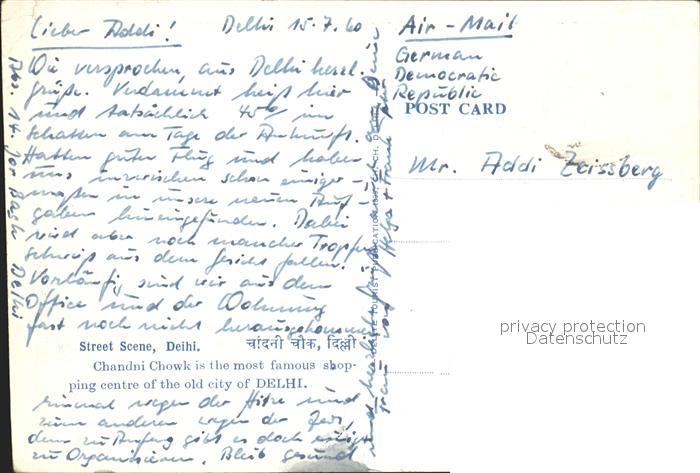 Lieber Addi!
Delhi 15.7.60
Wie versprochen, aus Delhi herzl.
Grüße. Verdammt heiß hier
und tatsächlich 45° im
Schatten am Tage der Ankunft.
Hatten guten Flug und haben
uns inzwischen schon einiger-
maßen in unsere neuen Auf-
gaben hineingefunden. Dabei
wird aber noch mancher Tropfen
Schweiß aus dem Gesicht fallen.
Vorläufig sind wir aus dem
Office und der Wohnung
fast noch nicht herausgekommen
Street Scene, Delhi. चांदनी चौक, दिल्ली
Chandni Chowk is the most famous shop-
ping centre of the old city of DELHI.
einmal wegen der Hitze und
zum anderen wegen der Zeit,
denn zu Anfang gibt es doch einiges
zu Organisieren. Bleib gesund
und herzliche Grüße
Frau von Helga + Frank
Abs. 14. Jor Bagh Delhi
Air-Mail
German
Democratic
Republic
POST CARD
Mr. Addi Zeissberg
privacy protection
Datenschutz